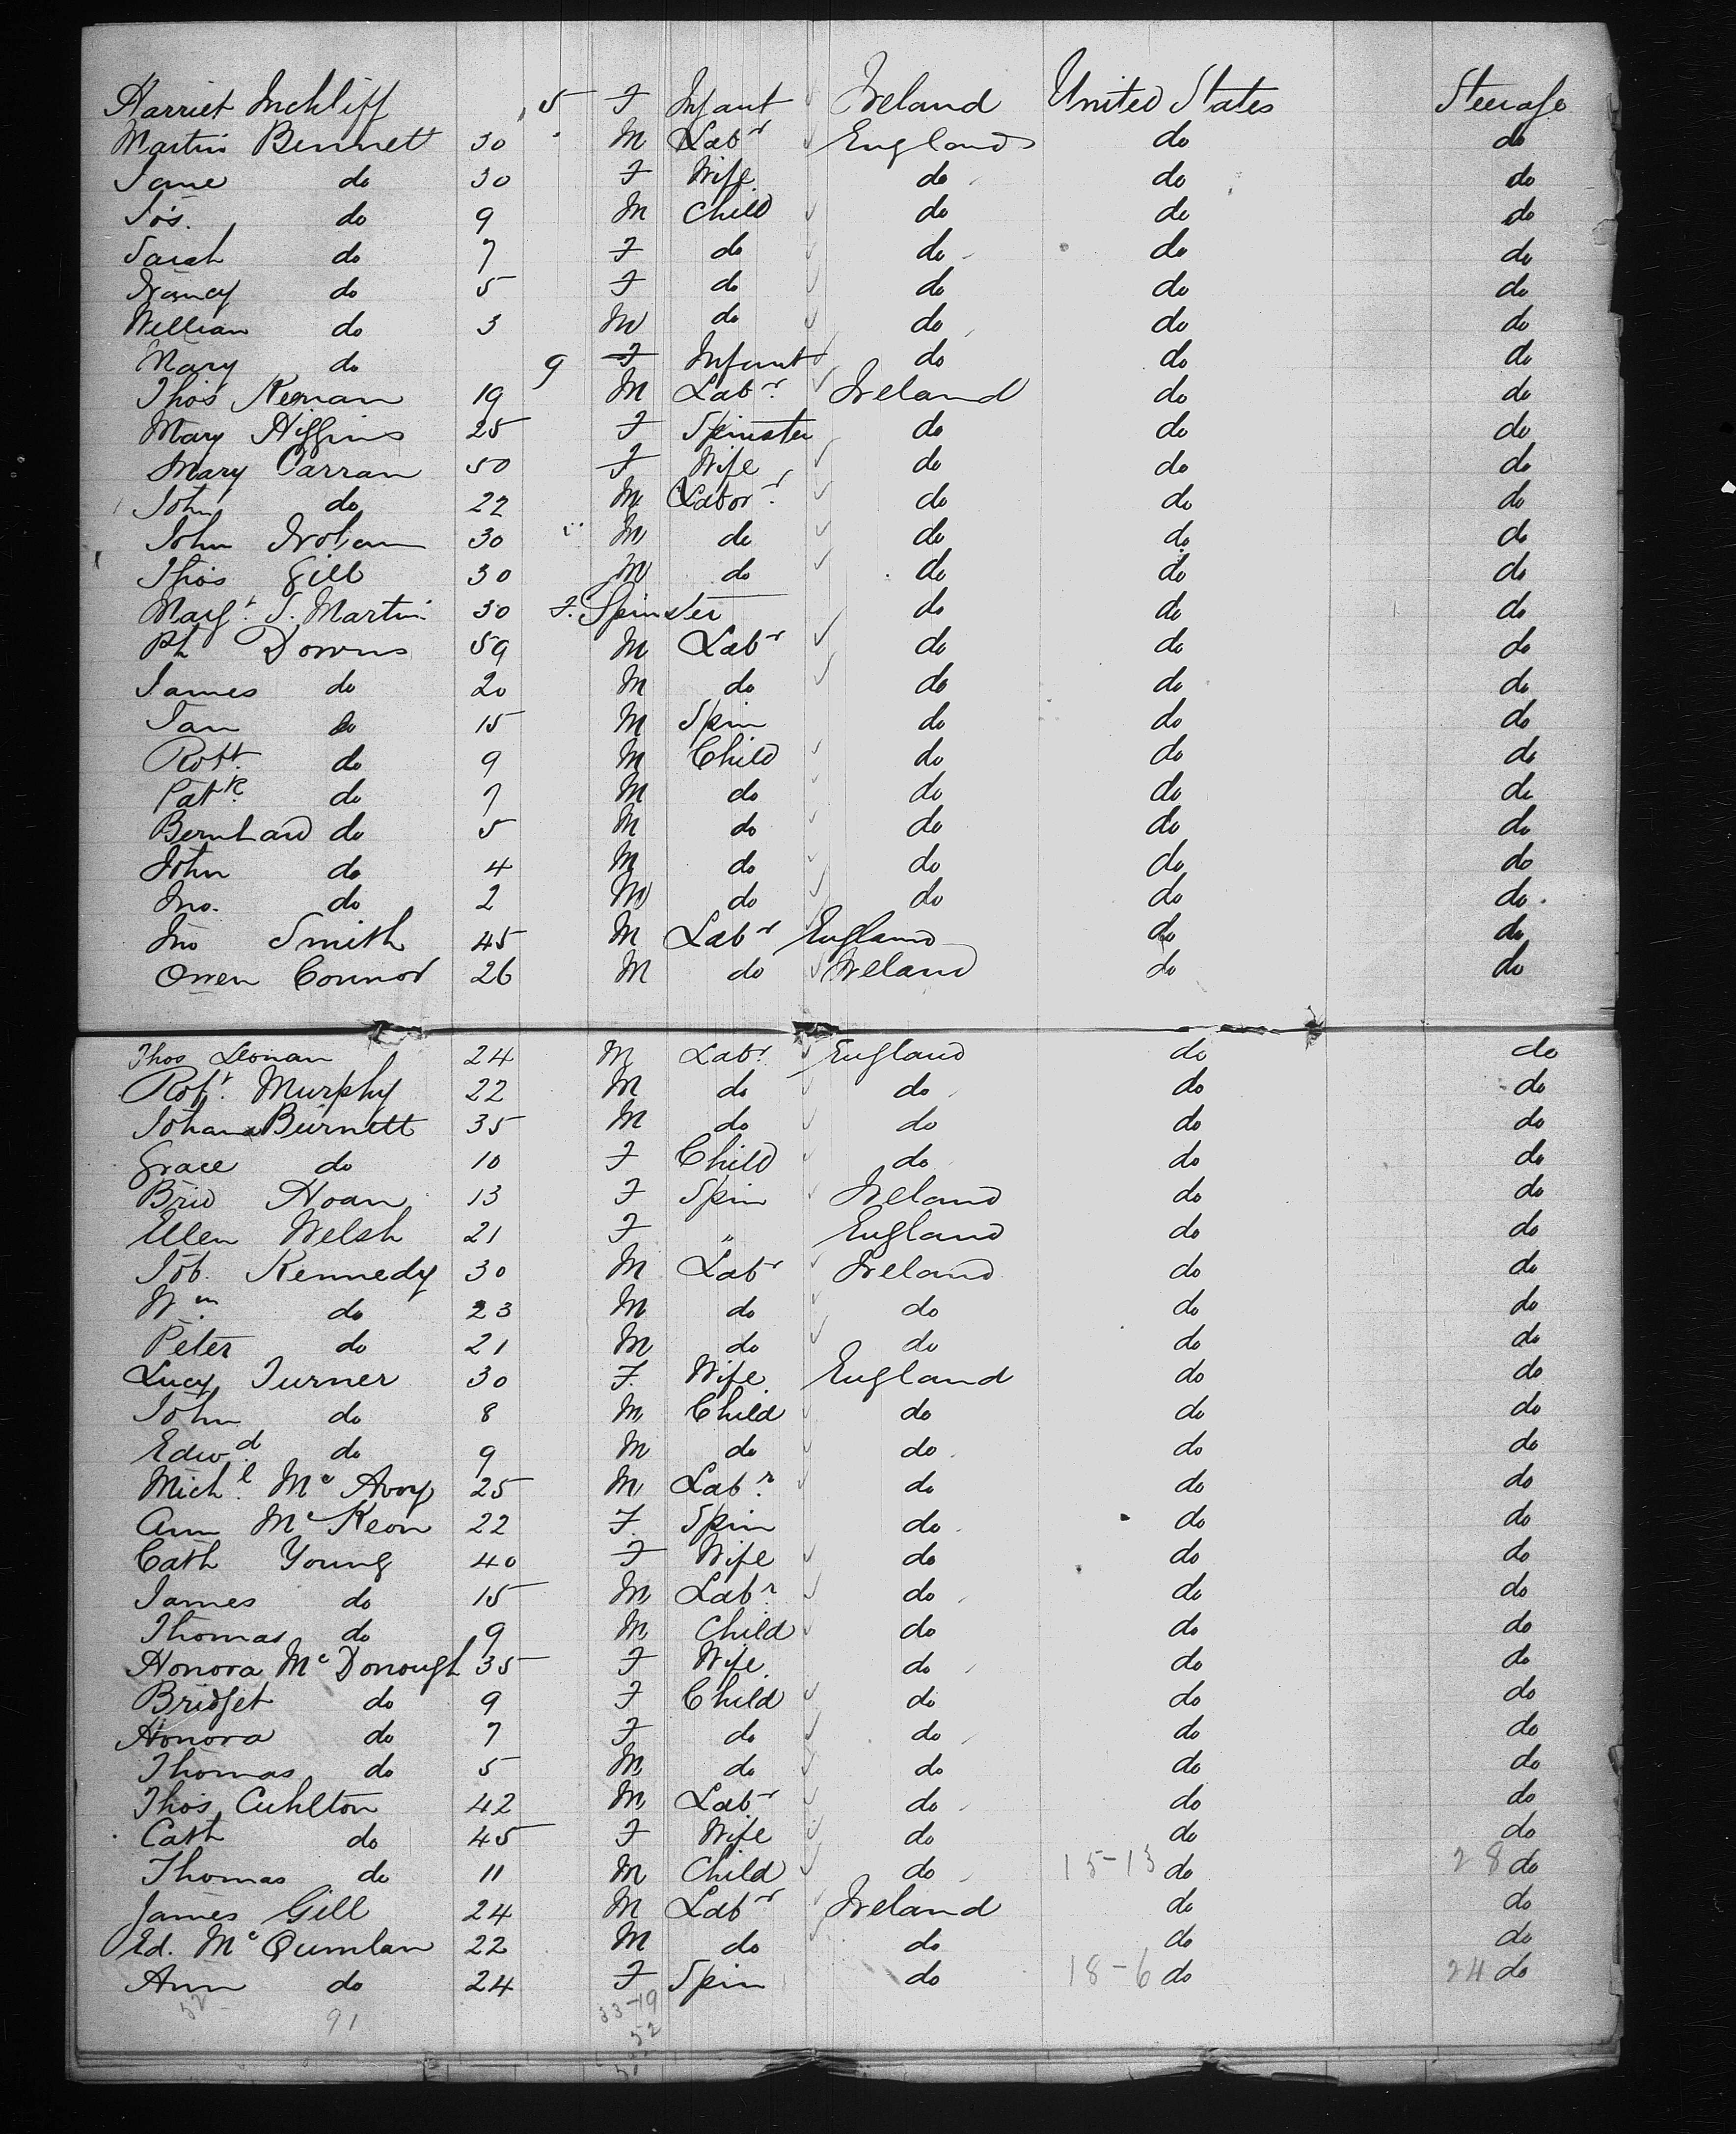 Harriet Inchliff 5 F Infant Ireland United States Steerage
Martin Bennett 30 M Labr England do do
Jane do 30 F Wife do do do
Jos. do 9 M Child do do do
Sarah do 7 F do do do do
Nancy do 5 F do do do do
William do 3 M do do do do
Mary do 9 F Infant do do do
Thos Kernan 19 M Labr Ireland do do
Mary Higgins 25 F Spinster do do do
Mary Carran 50 F Wife do do do
John do 22 M Labor do do do
John 30 M do do do do
Thos Gill 30 M do do do do
Margt. S. Martin 30 F. Spinster do do do
Pt Downs 59 M Labr do do do
James do 20 M do do do do
Jan do 15 M Spin do do do
Robt. do 9 M Child do do do
Patk. do 7 M do do do do
Bernhard do 5 M do do do do
John do 4 M do do do do
Jno. do 2 M do do do do
Jno Smith 45 M Labr England do do
Owen Connor 26 M do Ireland do do
Thos Leonan 24 M Labr England do do
Robt. Murphy 22 M do do do do
Johana Burnett 35 M do do do do
Grace do 10 F Child do do do
Brid Hoan 13 F Spin Ireland do do
Ellen Welsh 21 F " England do do
Job. Kennedy 30 M Labr Ireland do do
Wm. do 23 M do do do do
Peter do 21 M do do do do
Lucy Turner 30 F. Wife England do do
John do 8 M Child do do do
Edwd. do 9 M do do do do
Michl. Mc Avoy 25 M Labr. do do do
Ann Mc Keon 22 F. Spin do do do
Cath Young 40 F Wife do do do
James do 15 M Labr. do do do
Thomas do 9 M Child do do do
Honora Mc Donough 35 F Wife do do do
Bridget do 9 F Child do do do
Honora do 7 F do do do do
Thomas do 5 M do do do do
Thos Cuhlton 42 M Labr do do do
Cath do 45 F Wife do do do
Thomas do 11 M Child do 15-13 do 28 do
James Gill 24 M Labr Ireland do do
Ed. Mc Qumlan 22 M do do do do
Ann do 24 F Spin do 18-6 do 24 do
52 91 33-19
52